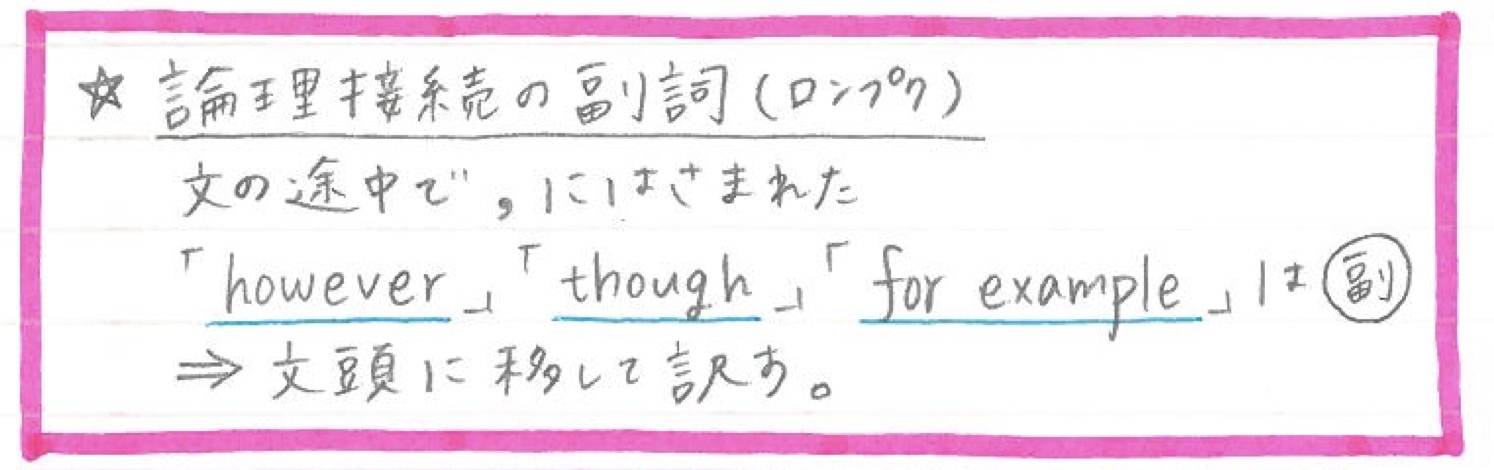 ☆ 論理接続の副詞(ロンプク)
文の途中で,にはさまれた
「however」「though」「for example」は副
⇒ 文頭に移して訳す。